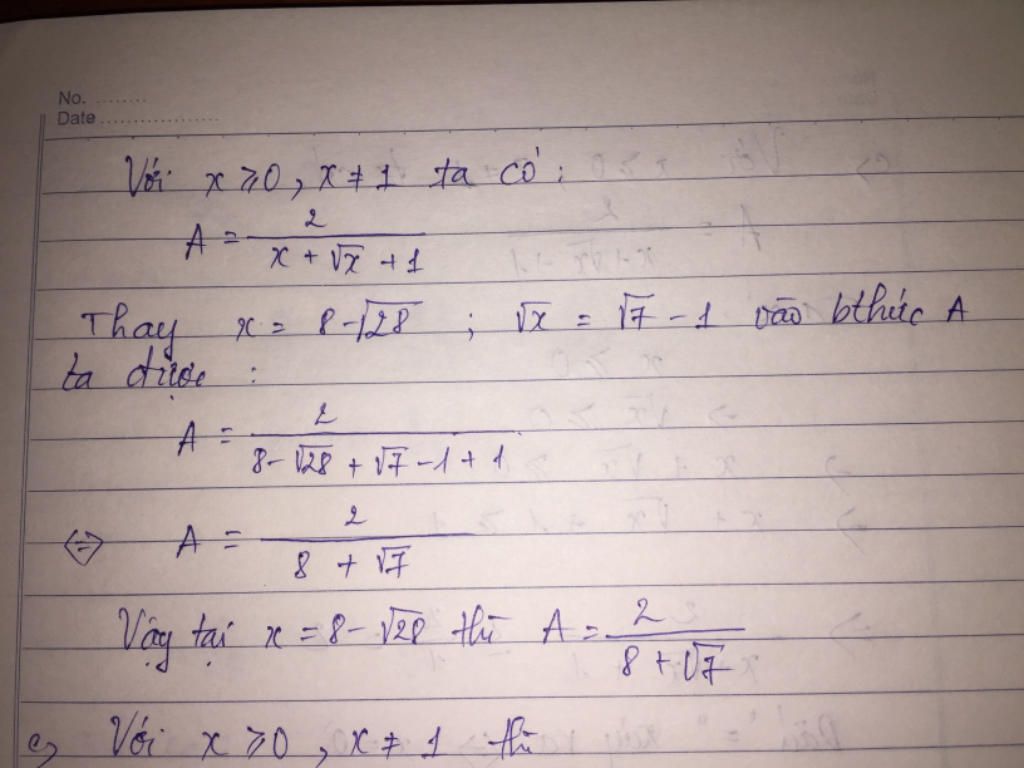 No. ........
Date .................
Với x ≥ 0, x ≠ 1 ta có :
A = 2 / (x + √x + 1)
Thay x = 8 - √28 ; √x = √7 - 1 vào bthức A
ta được :
A = 2 / (8 - √28 + √7 - 1 + 1)
<=> A = 2 / (8 + √7)
Vậy tại x = 8 - √28 thì A = 2 / (8 + √7)
c, Với x ≥ 0, x ≠ 1 thì